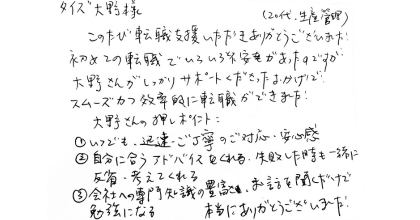 タイズ 大野様
(20代、生産管理)
このたび転職を援いただきありがとうございました!
初めての転職でいろいろ不安もがあったのですが
大野さんがしっかりサポートくださったおかげで
スムーズかつ効率的に転職ができました!
大野さんの押しポイント:
①いつでも迅速・ご丁寧のご対応・安心感
②自分に合うアドバイスをくれる。失敗した時も一緒に
反省・考えてくれる
③会社への専門知識の豊富さ、お話を聞くだけで
勉強になる 本当にありがとうございました!